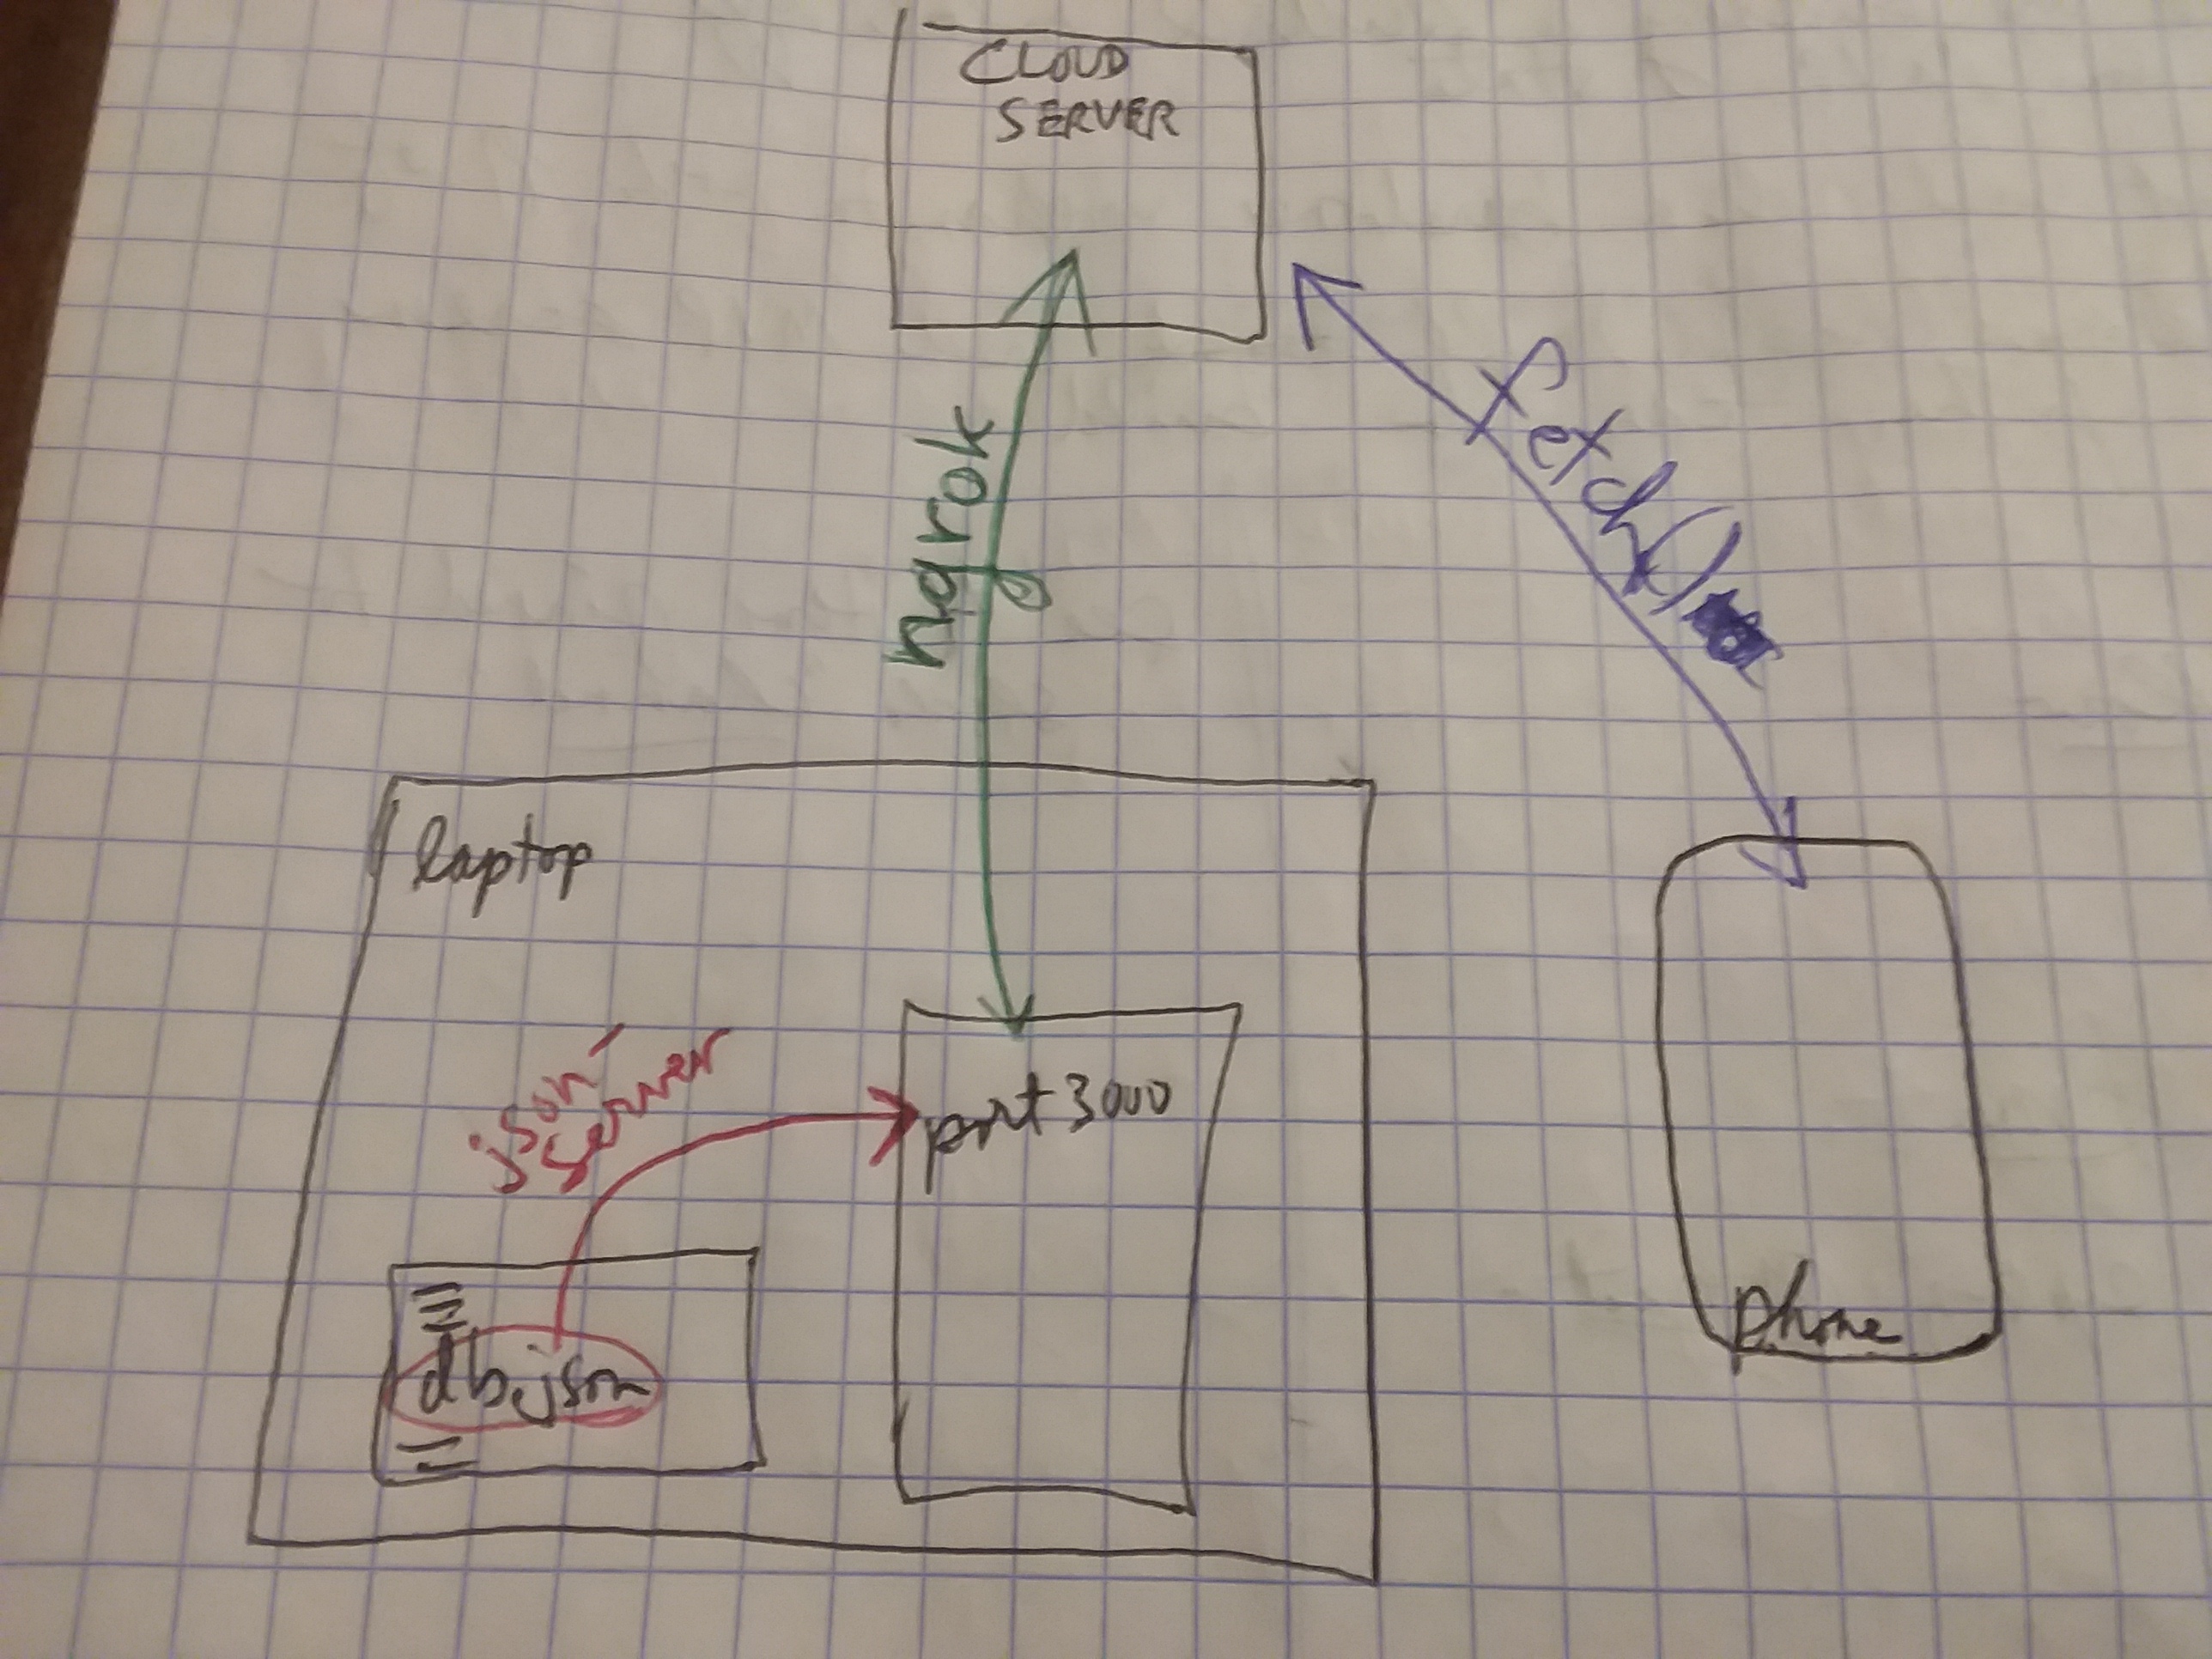 CLOUD
SERVER
ngrok
fetch()
laptop
json-
server
port 3000
db.json
phone